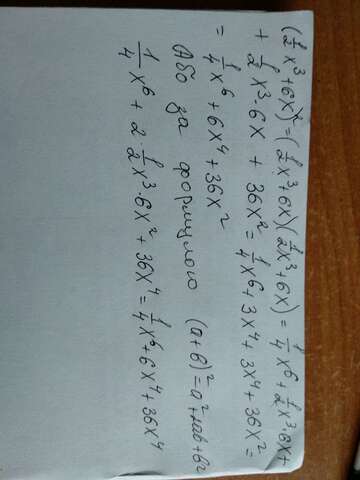 (1/2 x³ + 6x)² = (1/2 x³ + 6x)(1/2 x³ + 6x) = 1/4 x⁶ + 1/2 x³ · 6x +
+ 1/2 x³ · 6x + 36x² = 1/4 x⁶ + 3x⁴ + 3x⁴ + 36x² =
= 1/4 x⁶ + 6x⁴ + 36x²
Або за формулою (a+b)² = a² + 2ab + b²
1/4 x⁶ + 2 · 1/2 x³ · 6x² + 36x⁴ = 1/4 x⁶ + 6x⁴ + 36x⁴